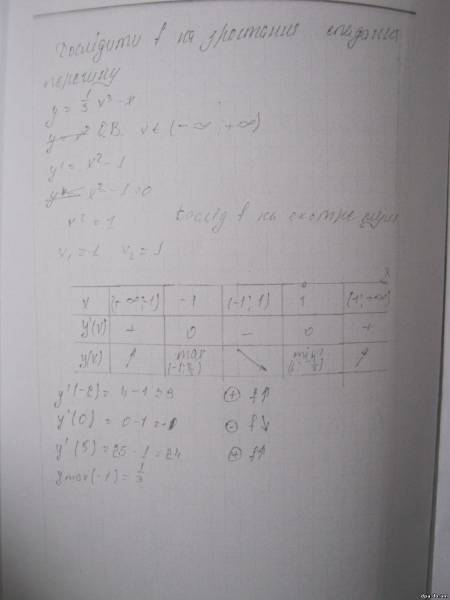 Дослідити f на зростання спадання
перегину
y = 1/3 x³ - x
y = x² О.В. x ∈ (-∞; +∞)
y' = x² - 1
x² - 1 = 0
x² = 1 дослід f на екстремуми
x₁ = -1 x₂ = 1
x (-∞; -1) -1 (-1; 1) 1 (1; +∞)
y'(x) + 0 - 0 +
y(x) ↑ max ↘ min ↑
y'(-2) = 4 - 1 = 3 ⊕ f↑
y'(0) = 0 - 1 = -1 ⊖ f↓
y'(5) = 25 - 1 = 24 ⊕ f↑
y max(-1) = 1/3